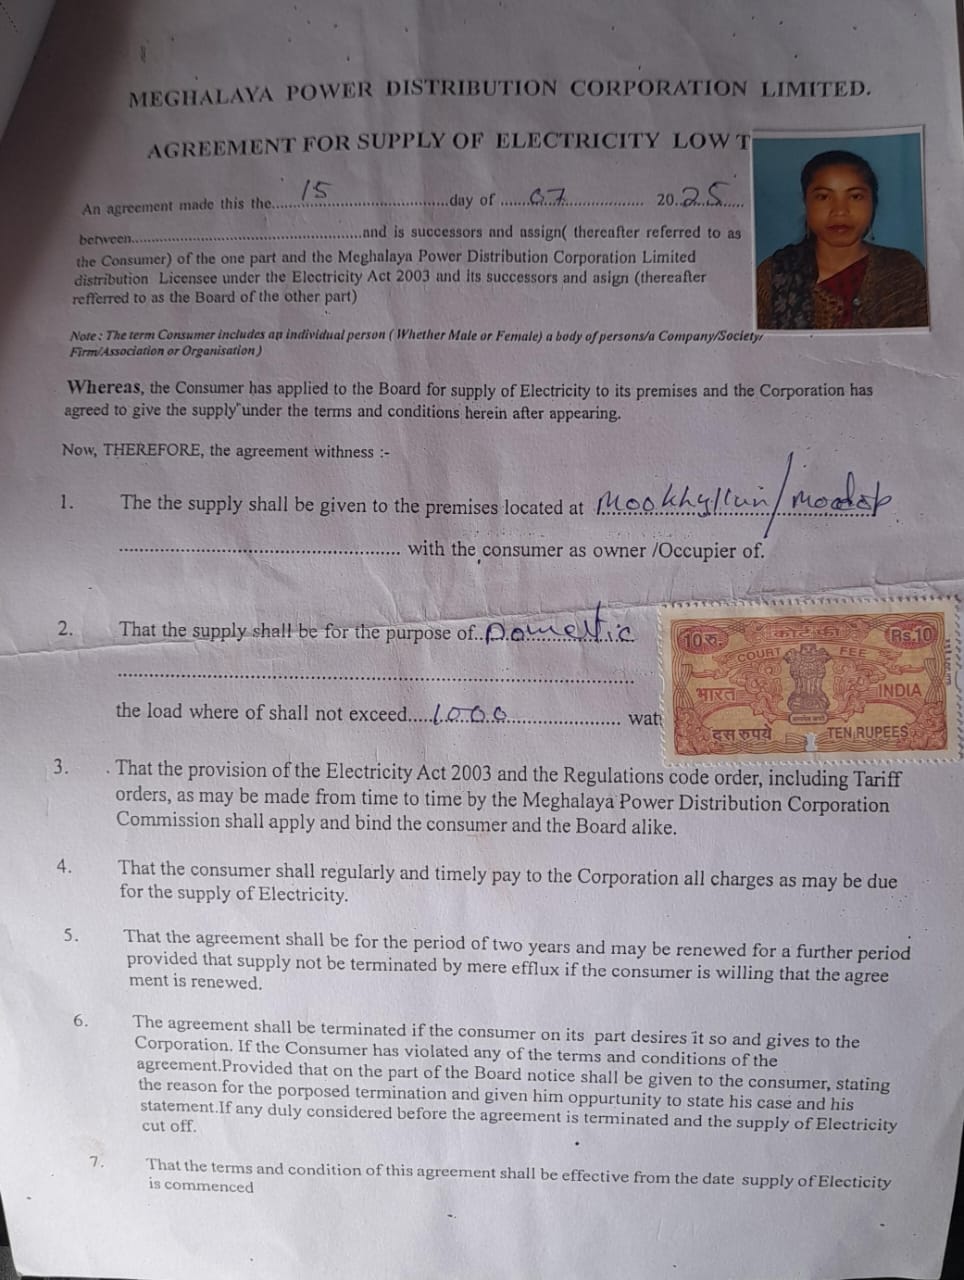 MEGHALAYA POWER DISTRIBUTION CORPORATION LIMITED.
AGREEMENT FOR SUPPLY OF ELECTRICITY LOW T
An agreement made this the....15....day of ....07.... 20..25....
between....................and is successors and assign( thereafter referred to as
the Consumer) of the one part and the Meghalaya Power Distribution Corporation Limited
distribution Licensee under the Electricity Act 2003 and its successors and asign (thereafter
refferred to as the Board of the other part)
Note : The term Consumer includes an individual person ( Whether Male or Female) a body of persons/a Company/Society/
Firm/Association or Organisation )
Whereas, the Consumer has applied to the Board for supply of Electricity to its premises and the Corporation has
agreed to give the supply under the terms and conditions herein after appearing.
Now, THEREFORE, the agreement withness :-
1. The the supply shall be given to the premises located at Mookhyllun/
.................... with the consumer as owner /Occupier of.
2. That the supply shall be for the purpose of..Domestic
10 रु. कोर्ट फी Rs.10
COURT FEE
भारत INDIA
दस रुपये TEN RUPEES
the load where of shall not exceed.....1000.................... wat
3. That the provision of the Electricity Act 2003 and the Regulations code order, including Tariff
orders, as may be made from time to time by the Meghalaya Power Distribution Corporation
Commission shall apply and bind the consumer and the Board alike.
4. That the consumer shall regularly and timely pay to the Corporation all charges as may be due
for the supply of Electricity.
5. That the agreement shall be for the period of two years and may be renewed for a further period
provided that supply not be terminated by mere efflux if the consumer is willing that the agree
ment is renewed.
6. The agreement shall be terminated if the consumer on its part desires it so and gives to the
Corporation. If the Consumer has violated any of the terms and conditions of the
agreement.Provided that on the part of the Board notice shall be given to the consumer, stating
the reason for the porposed termination and given him oppurtunity to state his case and his
statement.If any duly considered before the agreement is terminated and the supply of Electricity
cut off.
7. That the terms and condition of this agreement shall be effective from the date supply of Electicity
is commenced